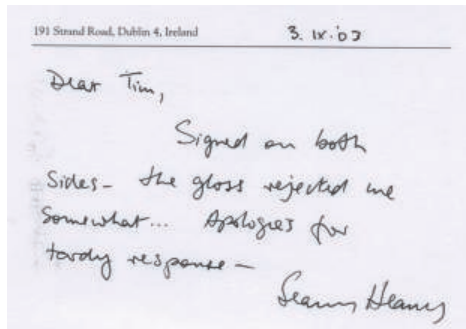 191 Strand Road, Dublin 4, Ireland
3. ix. '03
Dear Tim,
Signed on both
sides - the gloss rejected me
somewhat... Apologies for
tardy response —
Seamus Heaney